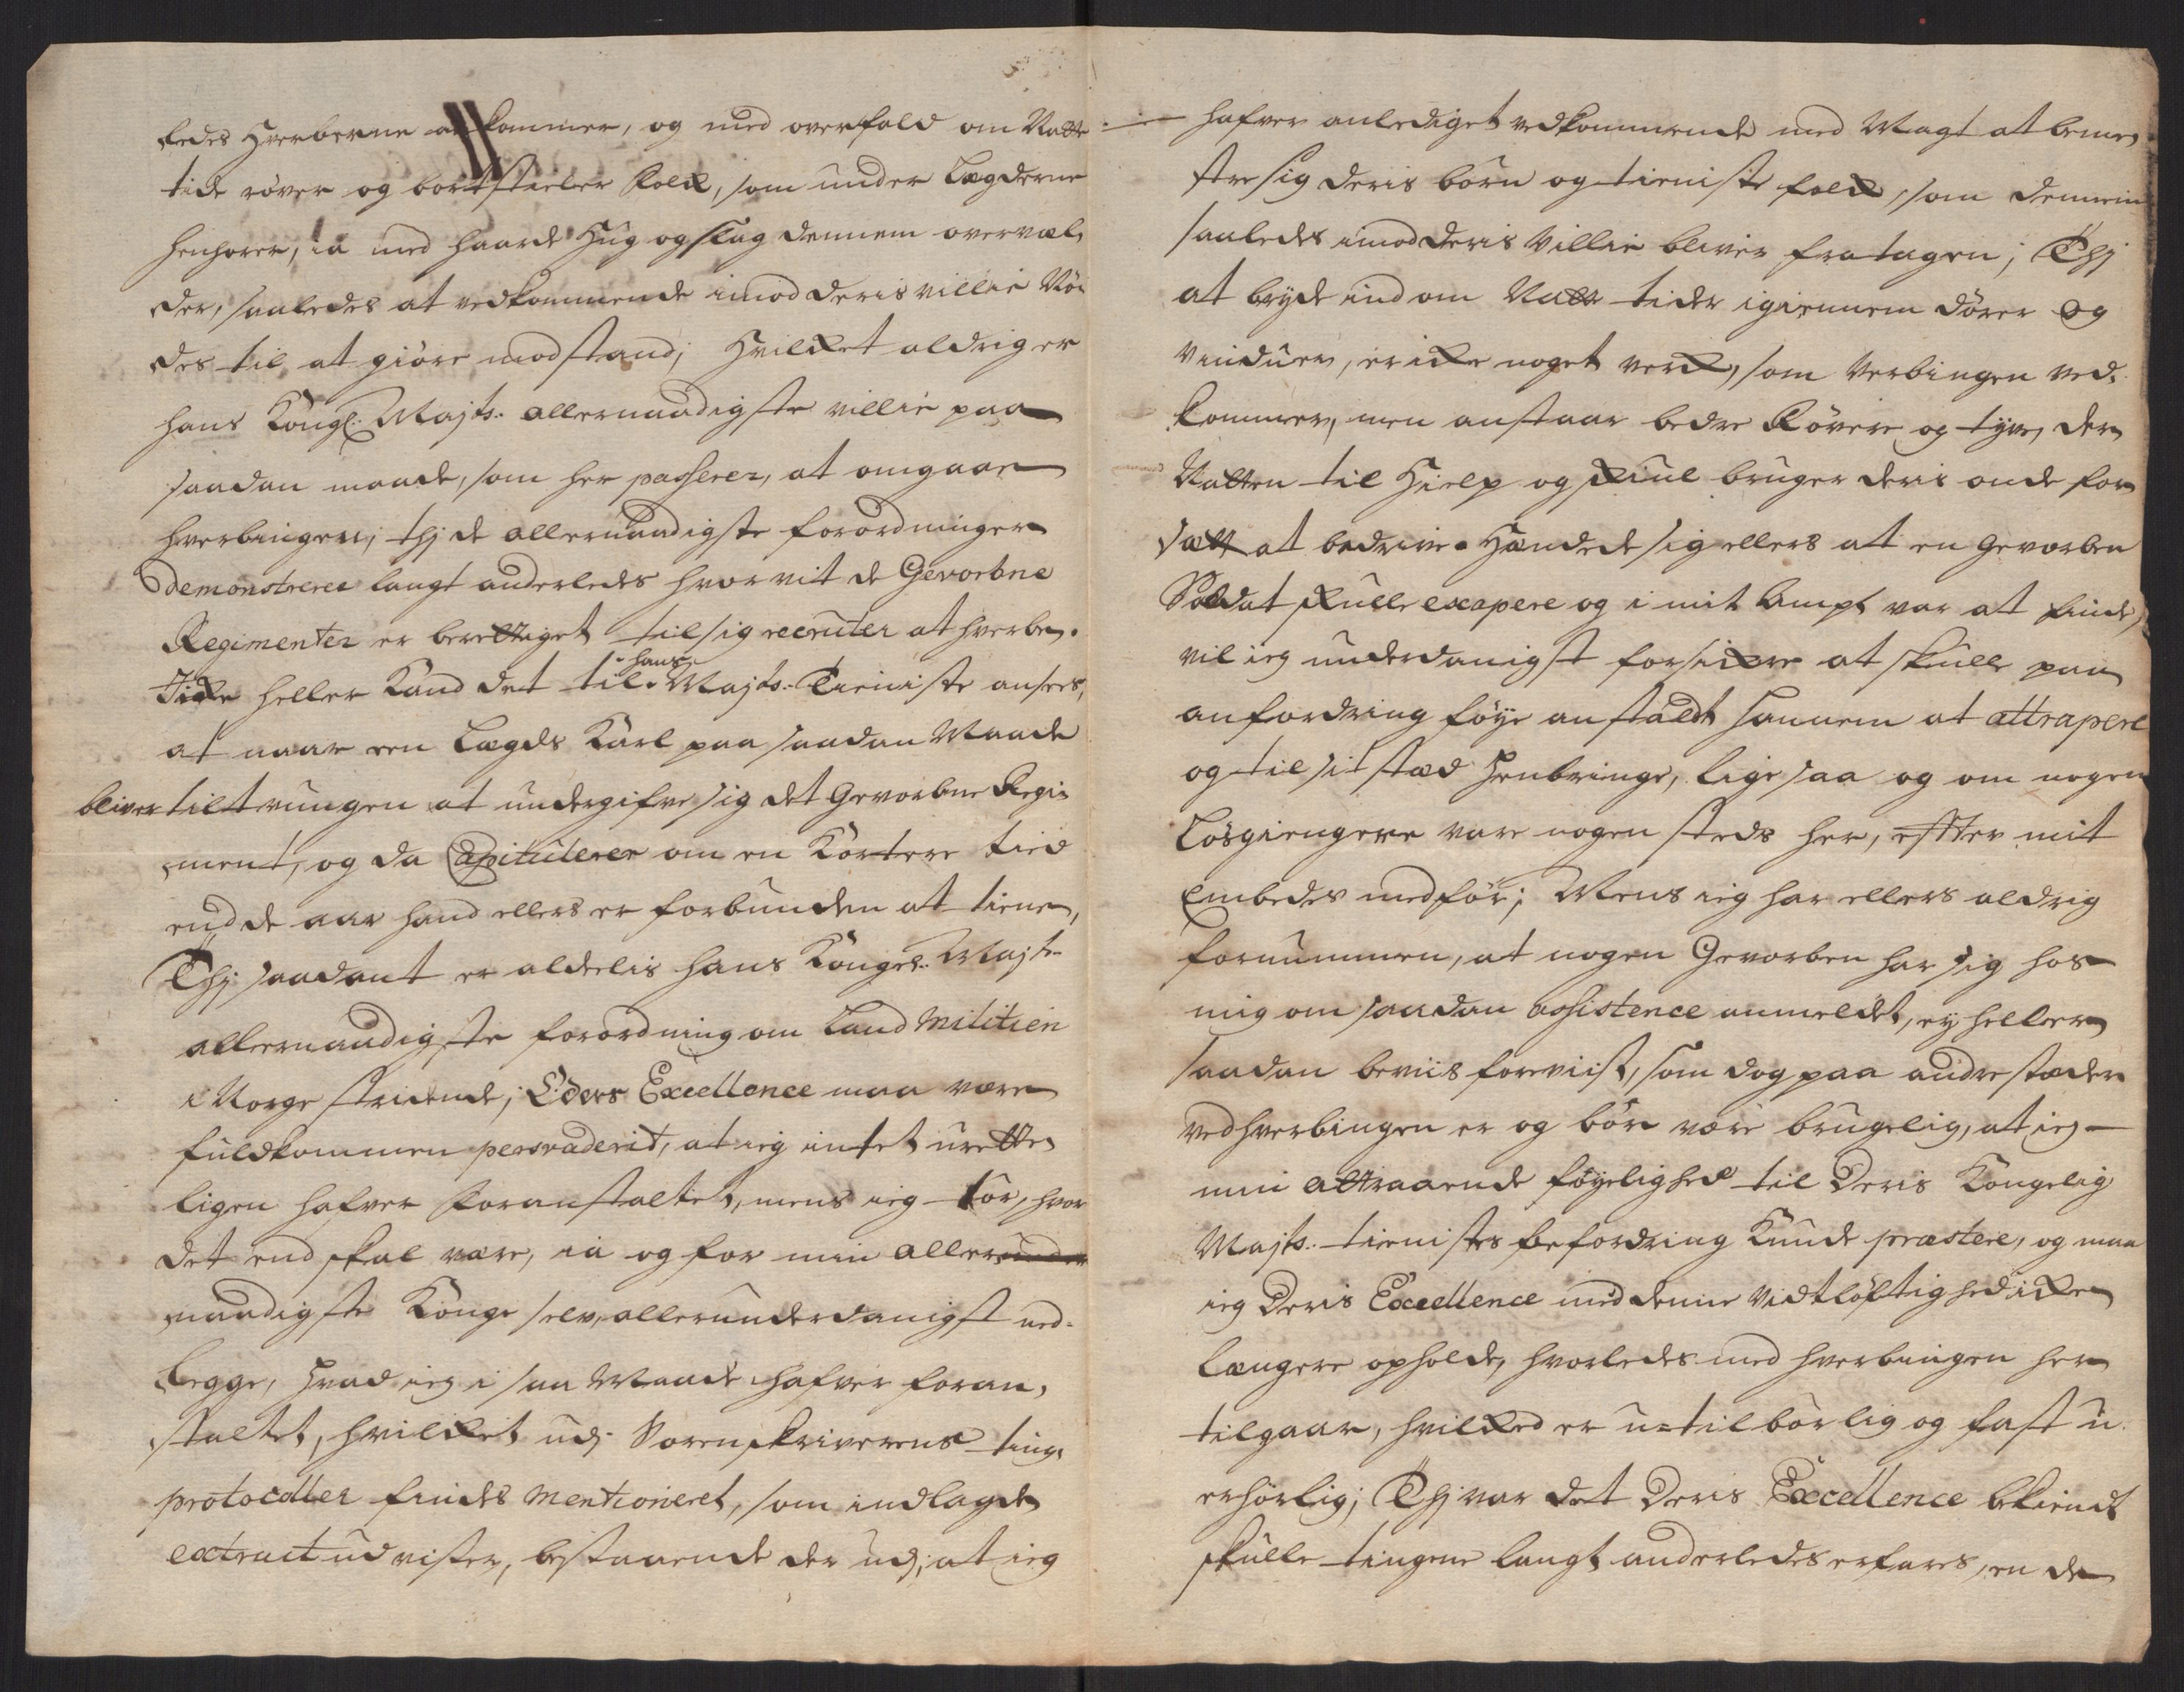 ledes Hverberne ankommer, og med overfald om Natte
tide röver og bortstieler Folck, som under Lægderne
henhorer, ia med haarde Hug og slag dennem overvæl,
der, saaledes at vedkommende imod deris villie Nö,
des til at giöre modstand; Hvilcket aldrig er
hans Kongl: Majts: allernaadigste villie paa
saadan maade, som her passerer, at omgaae
hverbingen; thj de allernaadigste forordninger
demonstrerer langt anderledes hvor vit de Gevorbne
Regimenter er berettiget til sig recruter at hverbe.
Icke heller kand det til hans Majts: Tieniste ansees,
at naar een Lægds Karl paa saadan Maade
bliver tiltvungen at undergifve sig det Gevorbne Regi
ment, og da Capitulerer om en Kortere tiid
end de aar hand ellers er forbunden at tiene,
Thj saadant er aldelis hans Kongel: Majts
allernaadigste forordning om Land Militien
i Norge stridende; Eders Excellence maa være
fuldkommen persvaderit, at ieg intet urette,
ligen hafver foranstaltet, mens ieg tör, hvor
det end skal være, ia og for min allerunder
naadigste Konge selv, allerunderdanigst ned-
legge, hvad ieg i saa Maade hafver foran,
staltet, hvilcket udj Sorenskriverens ting,
protocoller findes mentioneret, som indlagde
extract udviser, bestaaende der udj, at ieg
hafver anlediget vedkommende med Magt at bemes
stre sig deris börn og tieniste folck, som dennem
saaledes imod deris villie bliver fratagen; Thj
at bryde ind om Natte tider igiennem dörer og
vinduer, er icke noget verck, som Verbingen ved,
kommer, men anstaar bedre Rövere og tyve, der
Natten til Hielp og skiul bruger deris onde for
sætt at bedrive. Hændede sig ellers at en Gevorben
Soldat skulle exapere og i mit Ampt var at finde,
vil ieg underdanigst forsickre at skulle paa
anfordring föye anstaldt hannem at attrapere
og til sit stæd henbringe, lige saa og om nogen
Lösgiengere vare nogen steds her, effter mit
Embedes medför; Mens ieg har ellers aldrig
fornummen, at nogen Gevorben har sig hos
mig om saadan assistence anmeldet, ey heller
saadan beviis foreviist, som dog paa andre stæder
ved hverbingen er og bör være brugelig, at ieg
min attraaende föyelighed til Deris Kongelig
Majts: tienistes befordring kunde præstere, og maa
ieg Deris Excellence med denne vidtlöftighed icke
længere opholde, hvorledes med hverbingen her
tilgaar, hvilcked er u=tilbörlig og fast u
erhörlig; Thj var det Deris Excellence bekiendt
skulle tingene langt anderledes erfares, en de